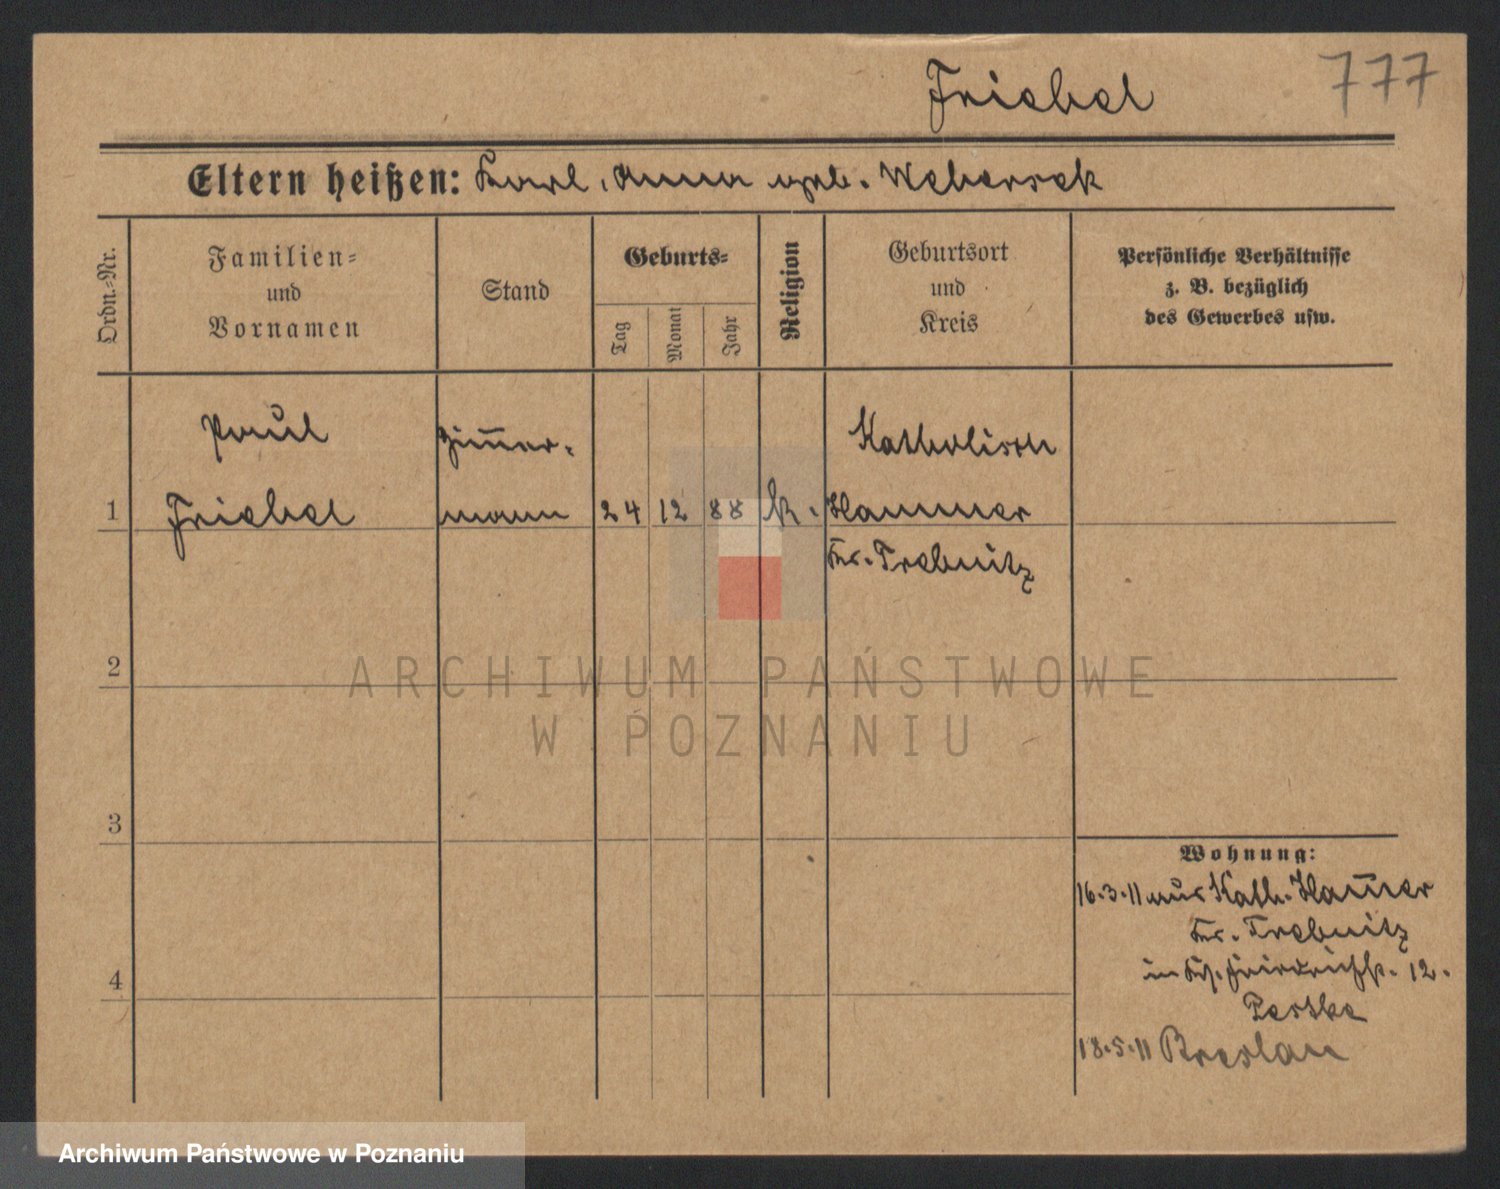 Friebel 777
Eltern heißen: Karl, Anna geb. Webersek
Ordn.=Nr.
Familien=
und
Vornamen
Stand
Geburts=
Tag
Monat
Jahr
Religion
Geburtsort
und
Kreis
Persönliche Verhältnisse
z. B. bezüglich
des Gewerbes usw.
Paul Zim̅er- Katholisch
1 Friebel mann 24 12 88 k. Hammer
Kr. Trebnitz
2
ARCHIWUM PAŃSTWOWE
W POZNANIU
3
Wohnung:
16.3.11 aus Kath. Ham̅er
Kr. Trebnitz
in Friedrichst. 12.
18.5.11 Breslau
4
Archiwum Państwowe w Poznaniu